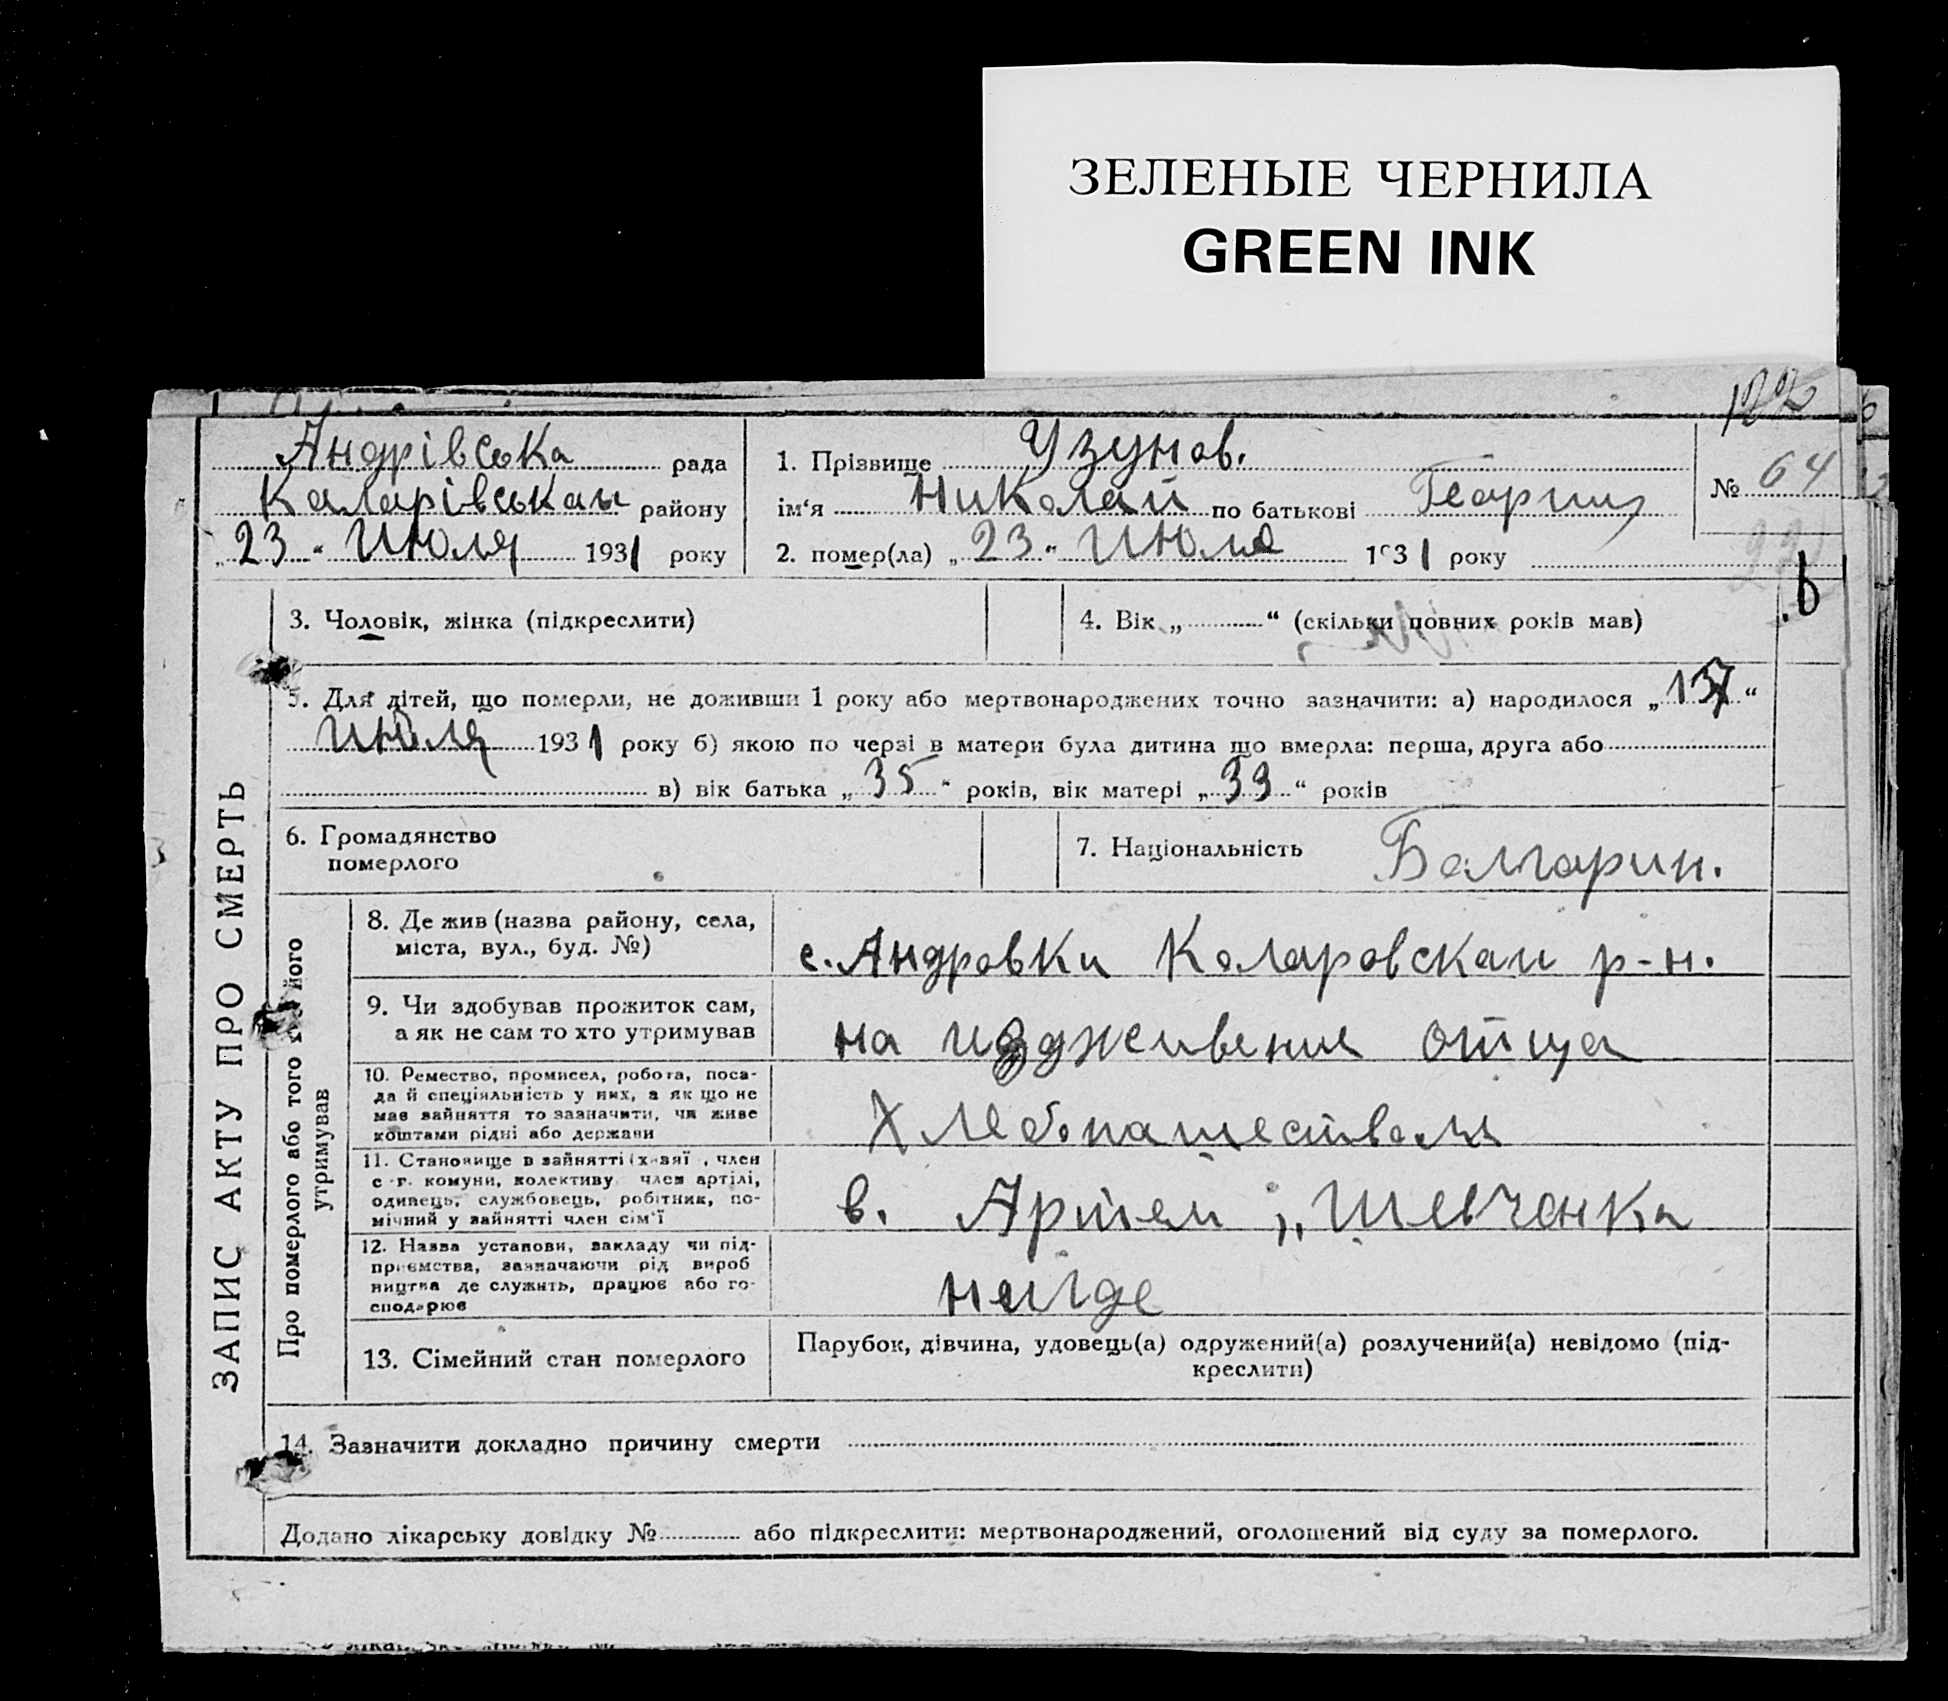 ЗЕЛЕНЫЕ ЧЕРНИЛА
GREEN INK
122
Андрівська рада
Каларівськаи району
„23“ Июля 1931 року
1. Прізвище Узунов.
ім‘я Николай по батькові Георгии
2. помер(ла) „23“ Июля 1931 року
№ 64
3. Чоловік, жінка (підкреслити)
4. Вік „“ (скільки повних років мав)
5. Для дітей, що померли, не доживши 1 року або мертвонароджених точно зазначити: а) народилося „137“
Июля 1931 року б) якою по черзі в матери була дитина що вмерла: перша, друга або
в) вік батька „35“ років, вік матері „33“ років
6. Громадянство
померлого
7. Національність Балгарин.
ЗАПИС АКТУ ПРО СМЕРТЬ
Про померлого або того його
утримував
8. Де жив (назва району, села,
міста, вул., буд. №)
с. Андровки Коларовскаи р-н.
9. Чи здобував прожиток сам,
а як не сам то хто утримував
на отца
10. Ремество, промисел, робота, поса-
да й спеціяльність у них, а як що не
має зайняття то зазначити, чи живе
коштами рідні або держави
11. Становище в зайнятті член
с-г. комуни, колективу член артілі,
одинець, службовець, робітник, по-
мічний у зайнятті член сім'ї
в. Артели „Шевченка
12. Назва установи, закладу чи під-
приємства, зазначаючи рід вироб
ництва де служить, працює або го-
сподарює
нигде
13. Сімейний стан померлого
Парубок, дівчина, удовець(а) одружений(а) розлучений(а) невідомо (під-
креслити)
14. Зазначити докладно причину смерти
Додано лікарську довідку № або підкреслити: мертвонароджений, оголошений від суду за померлого.